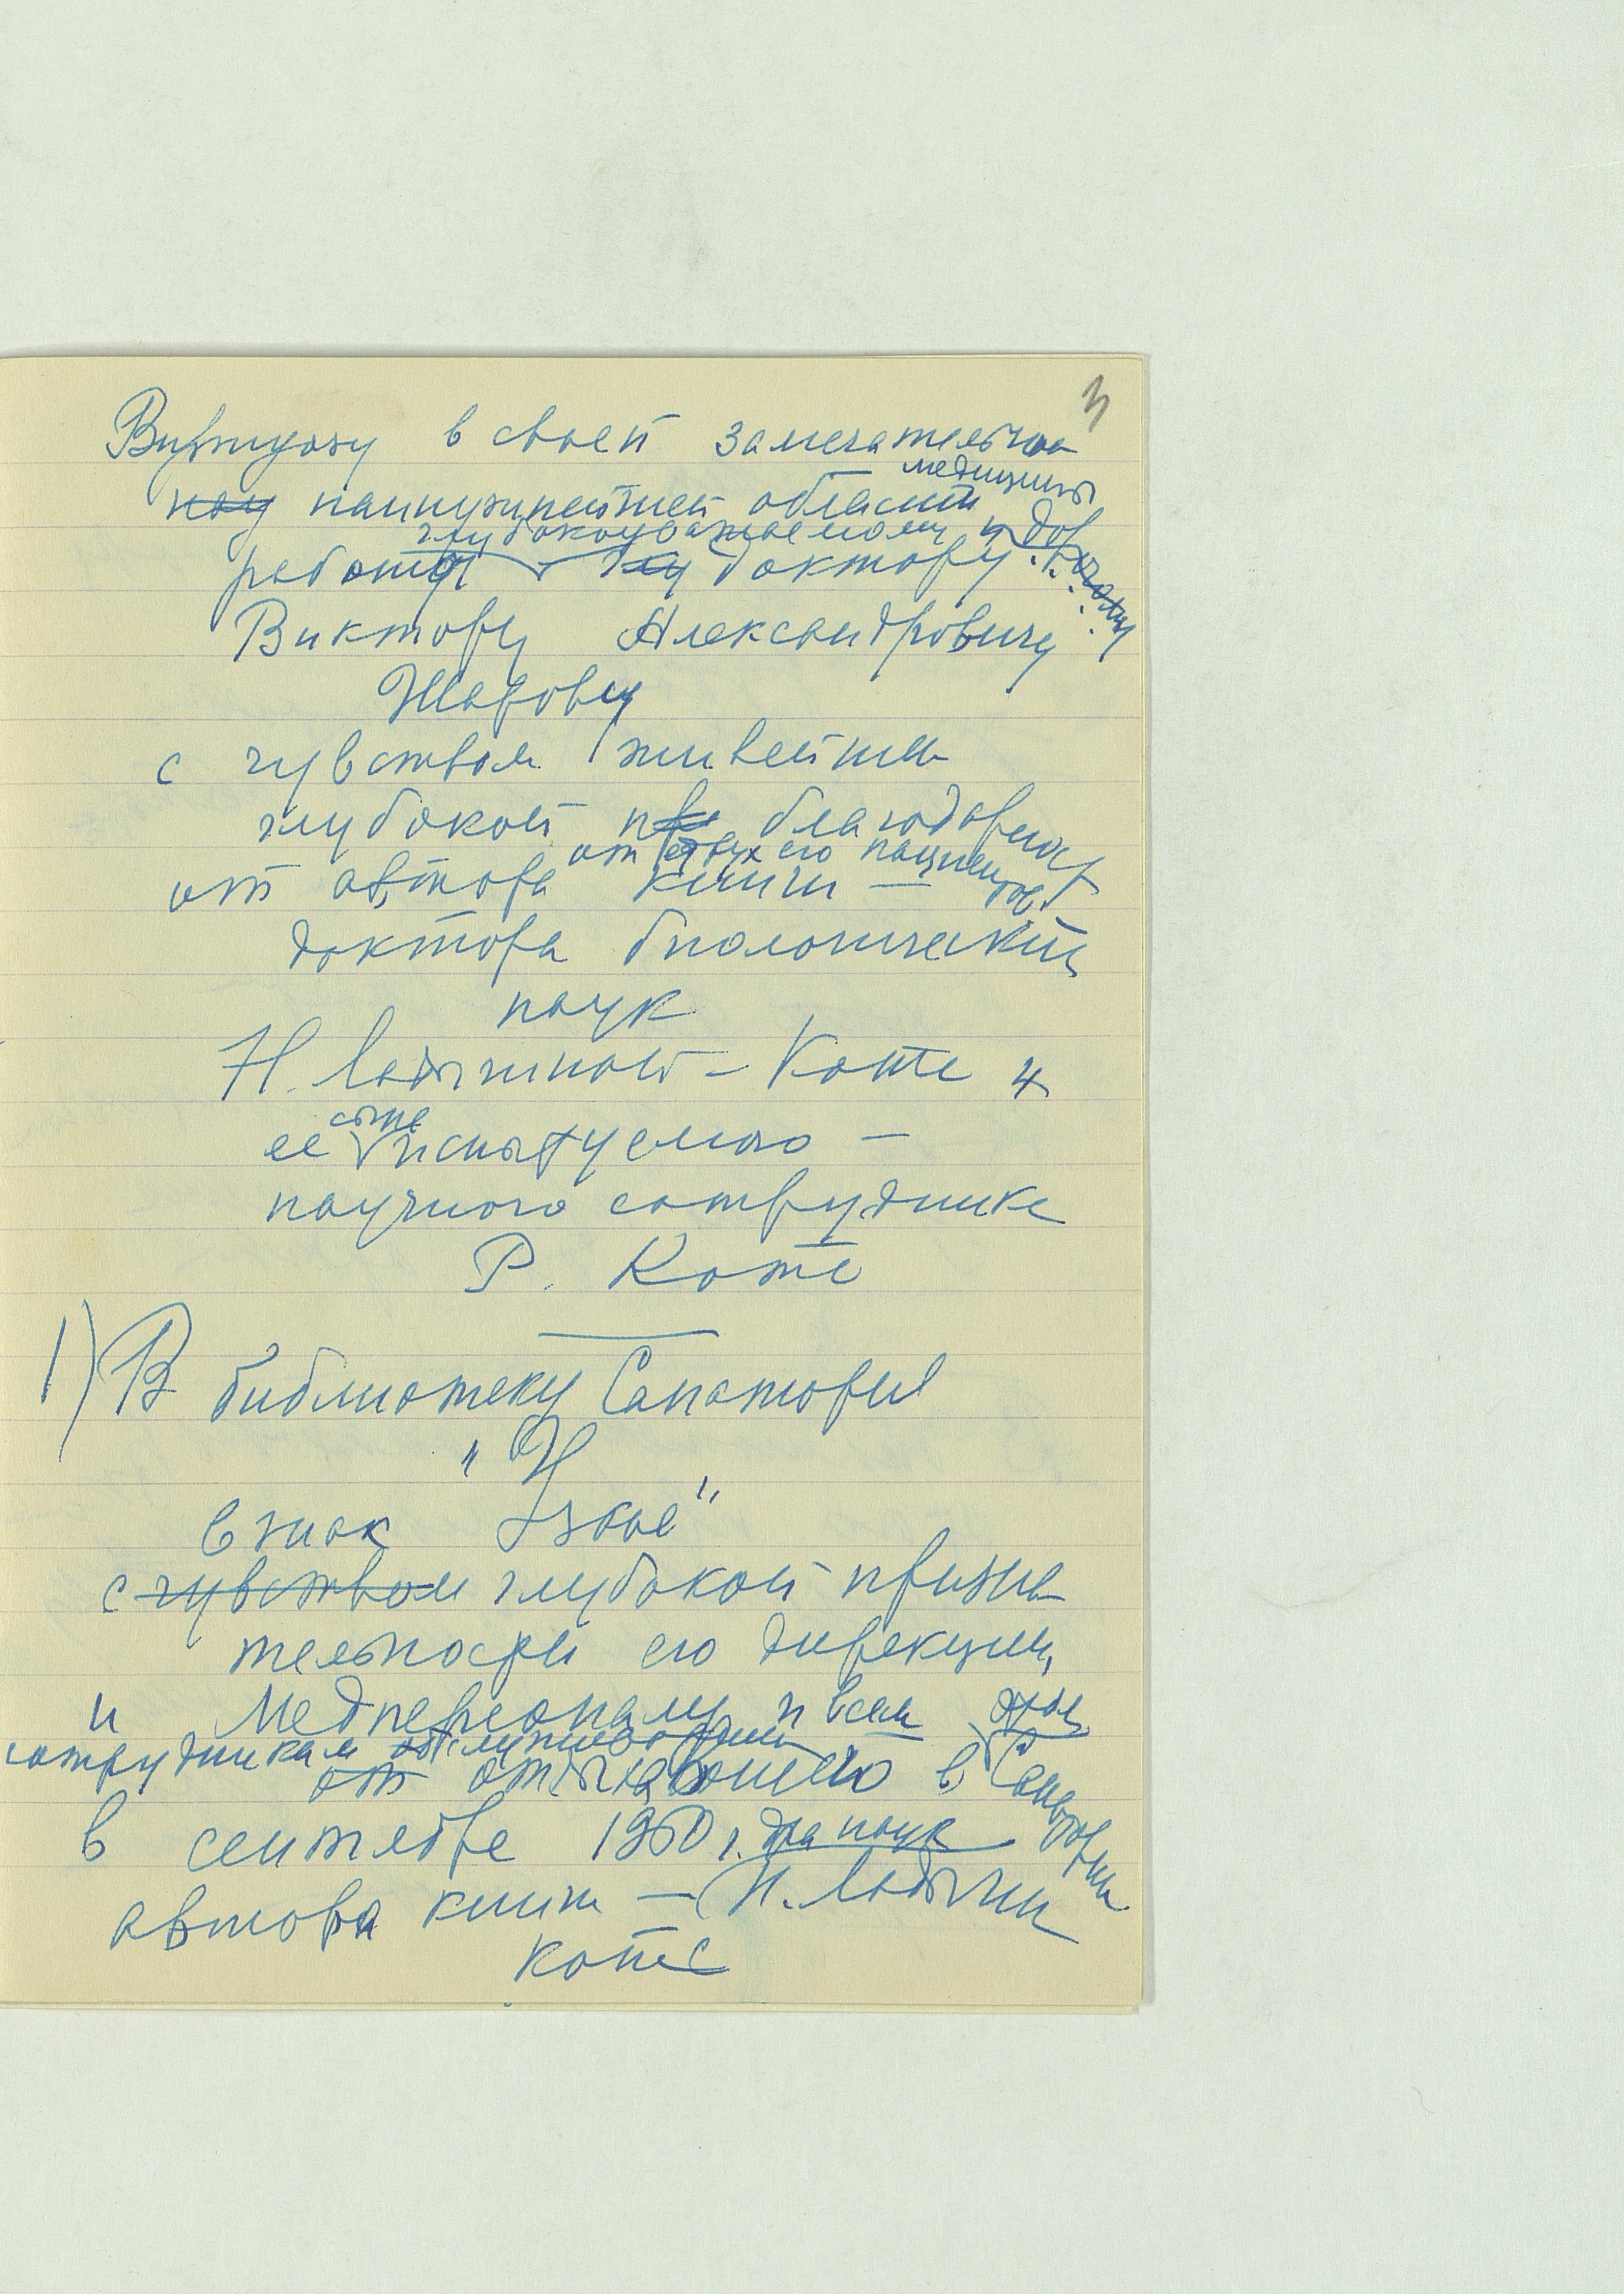 3
Виртуозу в своей замечательной
медицины
ной наинужнейшей области
глубокоуважаемому и дорогому
работы доктору
Виктору Александровичу
Шарову
с чувством живейшей
глубокой при благодарност
от двух его пациентов:
от автора книги —
доктора биологических
наук
Н. Ладыгиной-Котс и
сына
ее испытуемого —
научного сотрудника
Р. Котс
1) В библиотеку Санатория
"Узкое"
в знак
с чувством глубокой призна
тельности его дирекции,
и медперсоналу и всем
сотрудникам обслуживающим
от отдыхавшего в Санатории
в сентябре 1960 г. дра наук
автора книги — Н. Ладыгин
Котс